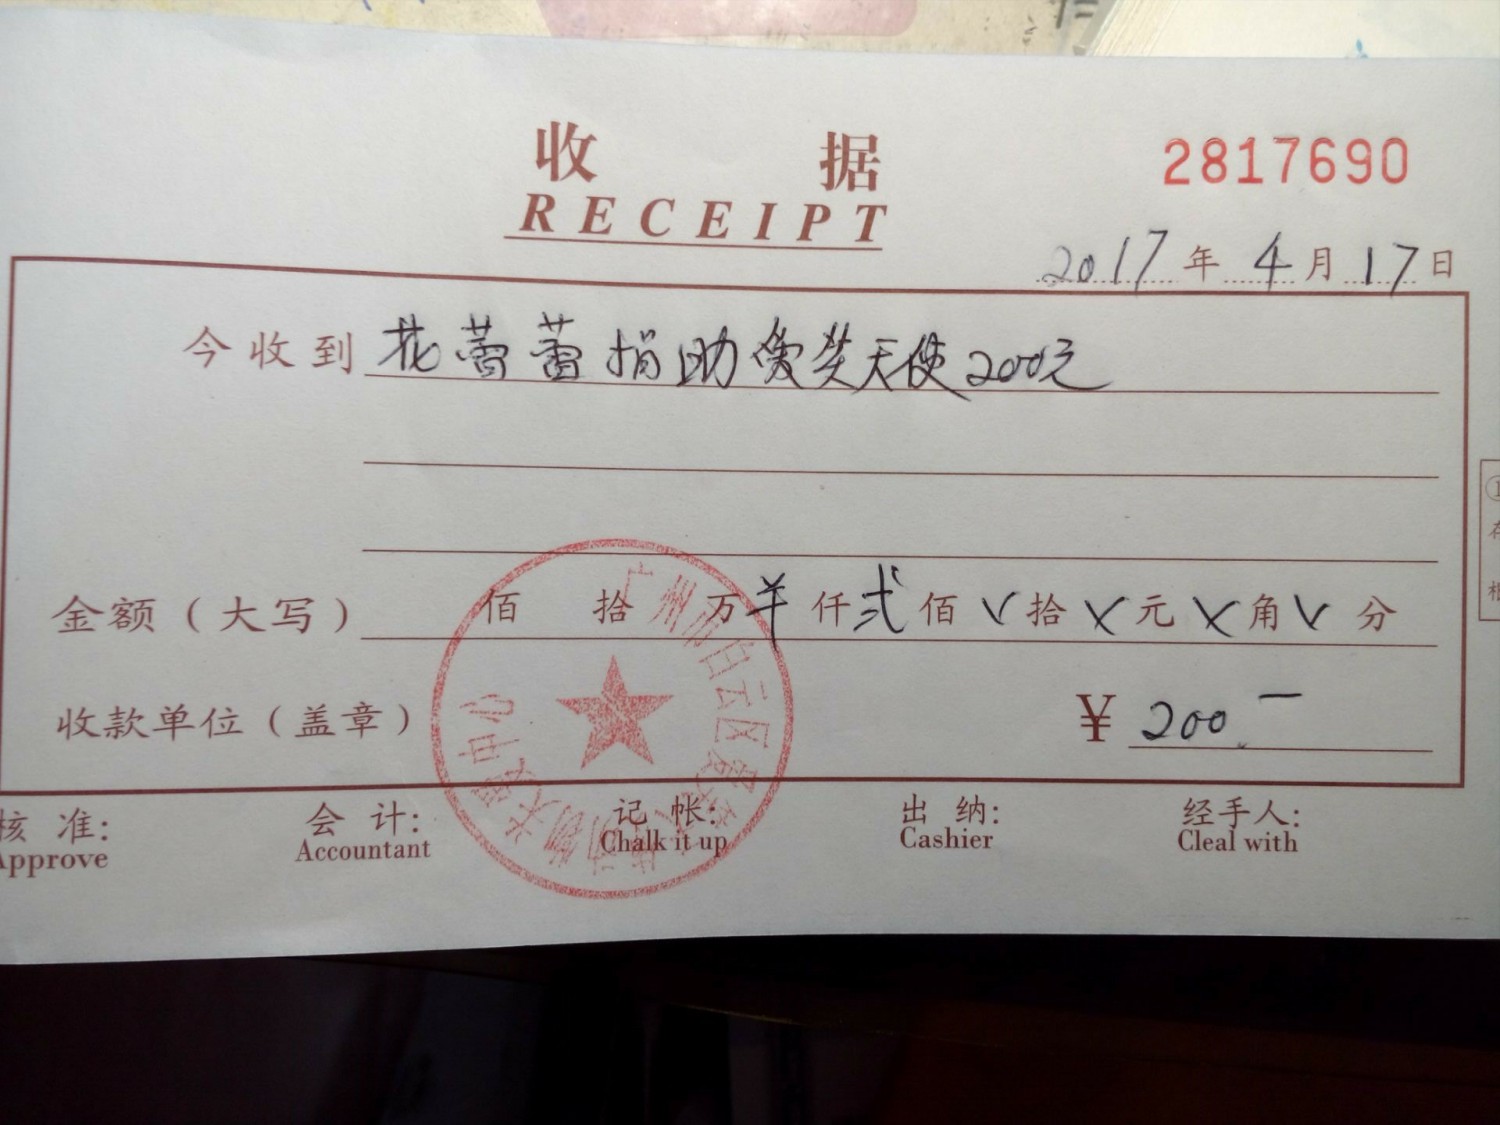 收 据
RECEIPT
2817690
2017年4月17日
今收到 花蕾蕾捐助爱笑天使200元
金额（大写） 佰 拾 万 羊 仟 弍 佰 ㄨ 拾 ㄨ 元 ㄨ 角 ㄨ 分
收款单位（盖章） ¥ 200.—
广州市白云区爱
关爱中心
核 准: 会 计: 记 帐: 出 纳: 经手人:
Approve Accountant Chalk it up Cashier Cleal with